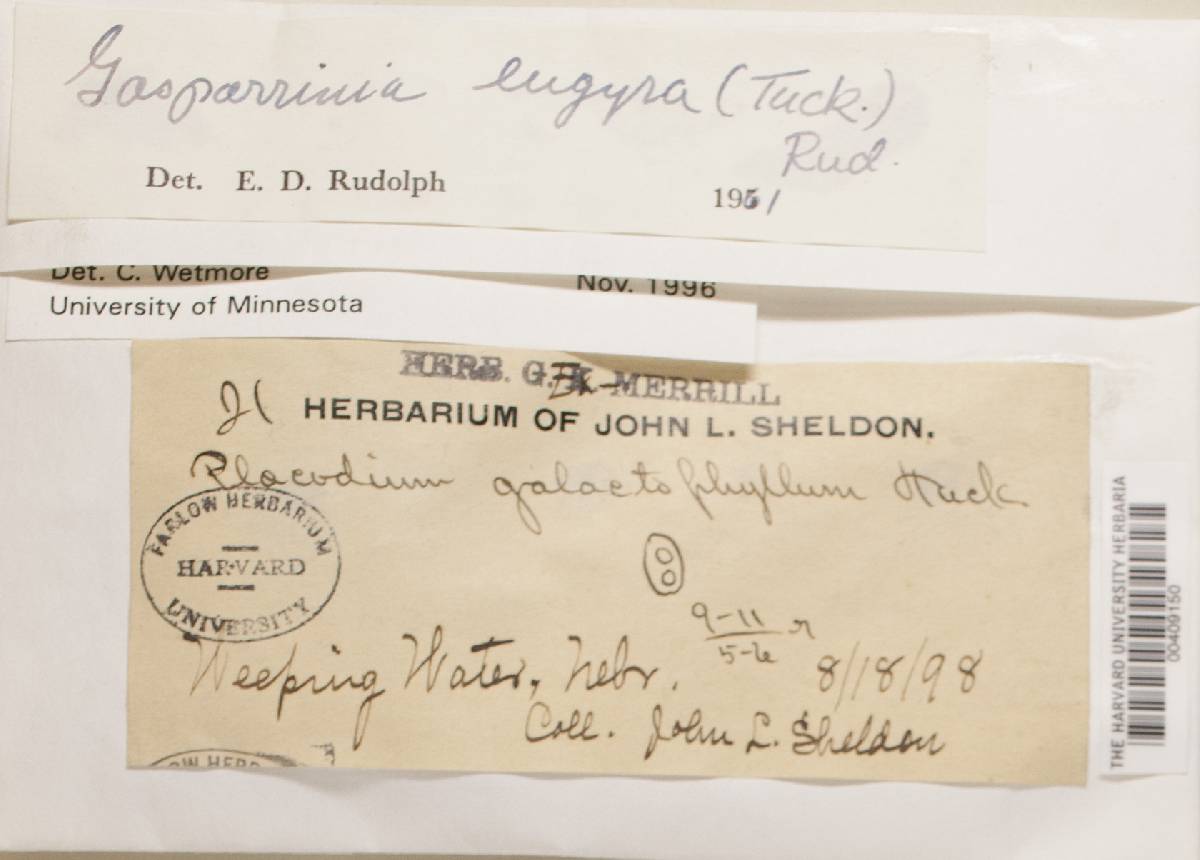 Gasparrinia eugyra (Tuck.)
Rud.
Det. E. D. Rudolph 1951
Det. C. Wetmore Nov. 1996
University of Minnesota
HERB. G. K. MERRILL
HERBARIUM OF JOHN L. SHELDON.
Placodium galactophyllum Tuck
FARLOW HERBARIUM
HARVARD
UNIVERSITY
9-11
5-6
Weeping Water, Nebr. 8/18/98
Coll. John L. Sheldon
OW HERB
THE HARVARD UNIVERSITY HERBARIA
00409150